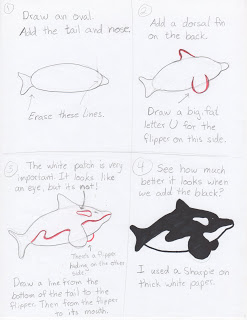 1
Draw an oval.
Add the tail and nose.
Erase these lines.
2
Add a dorsal fin
on the back.
Draw a big, fat
letter U for the
flipper on this side.
3
The white patch is very
important. It looks like
an eye, but its not!
There's a flipper
hiding on the other
side.
Draw a line from the
bottom of the tail to the
flipper. Then from the flipper
to its mouth.
4
See how much
better it looks when
we add the black?
I used a Sharpie on
thick white paper.